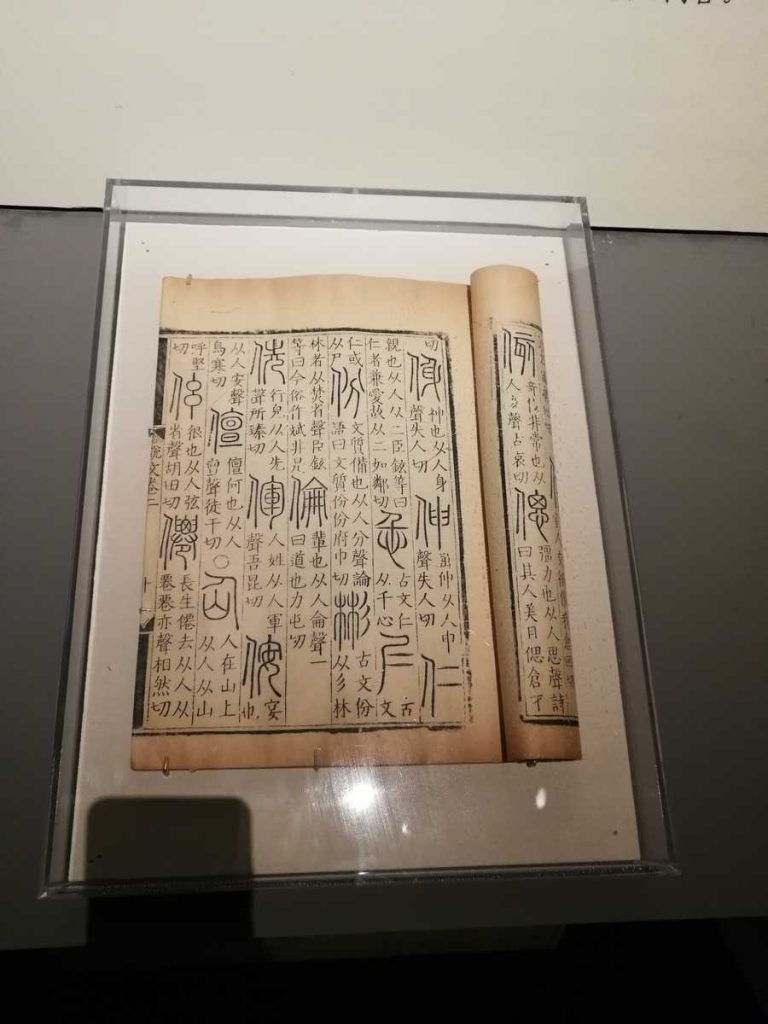 侅奇侅非常也从
人亥聲古哀切
偲彊力也从人思聲詩
曰其人美且偲倉才
曰㑗神也从人身
聲失人切
伸屈伸从人申
聲失人切
仁
親也从人从二臣鉉等曰
仁者兼愛故从二如鄰切
忎古文仁
从千心
𡰥古
文
仁或
从尸
份文質備也从人分聲論
語曰文質份份府巾切
彬古文份
从彡林
林者从焚省聲臣鉉
等曰今俗作斌非是
倫輩也从人侖聲一
曰道也力屯切
侁行皃从人先
聲所臻切
人姓从人軍
聲吾昆切
侒宴
也
从人安聲
烏寒切
儃儃何也从人
亶聲徒干切
○
仚人在山上
从人从山
呼堅
切
伭很也从人弦
省聲胡田切
僊長生僊去从人从
䙴䙴亦聲相然切
說文卷二
十